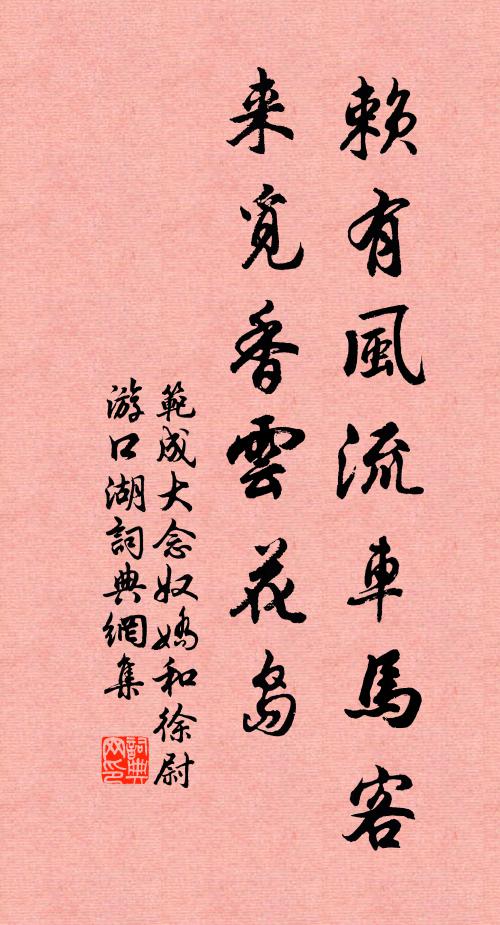 賴有風流車馬客
来覓香雲花島
範成大念奴嬌和徐尉
游口湖詞典網集
詞典网印